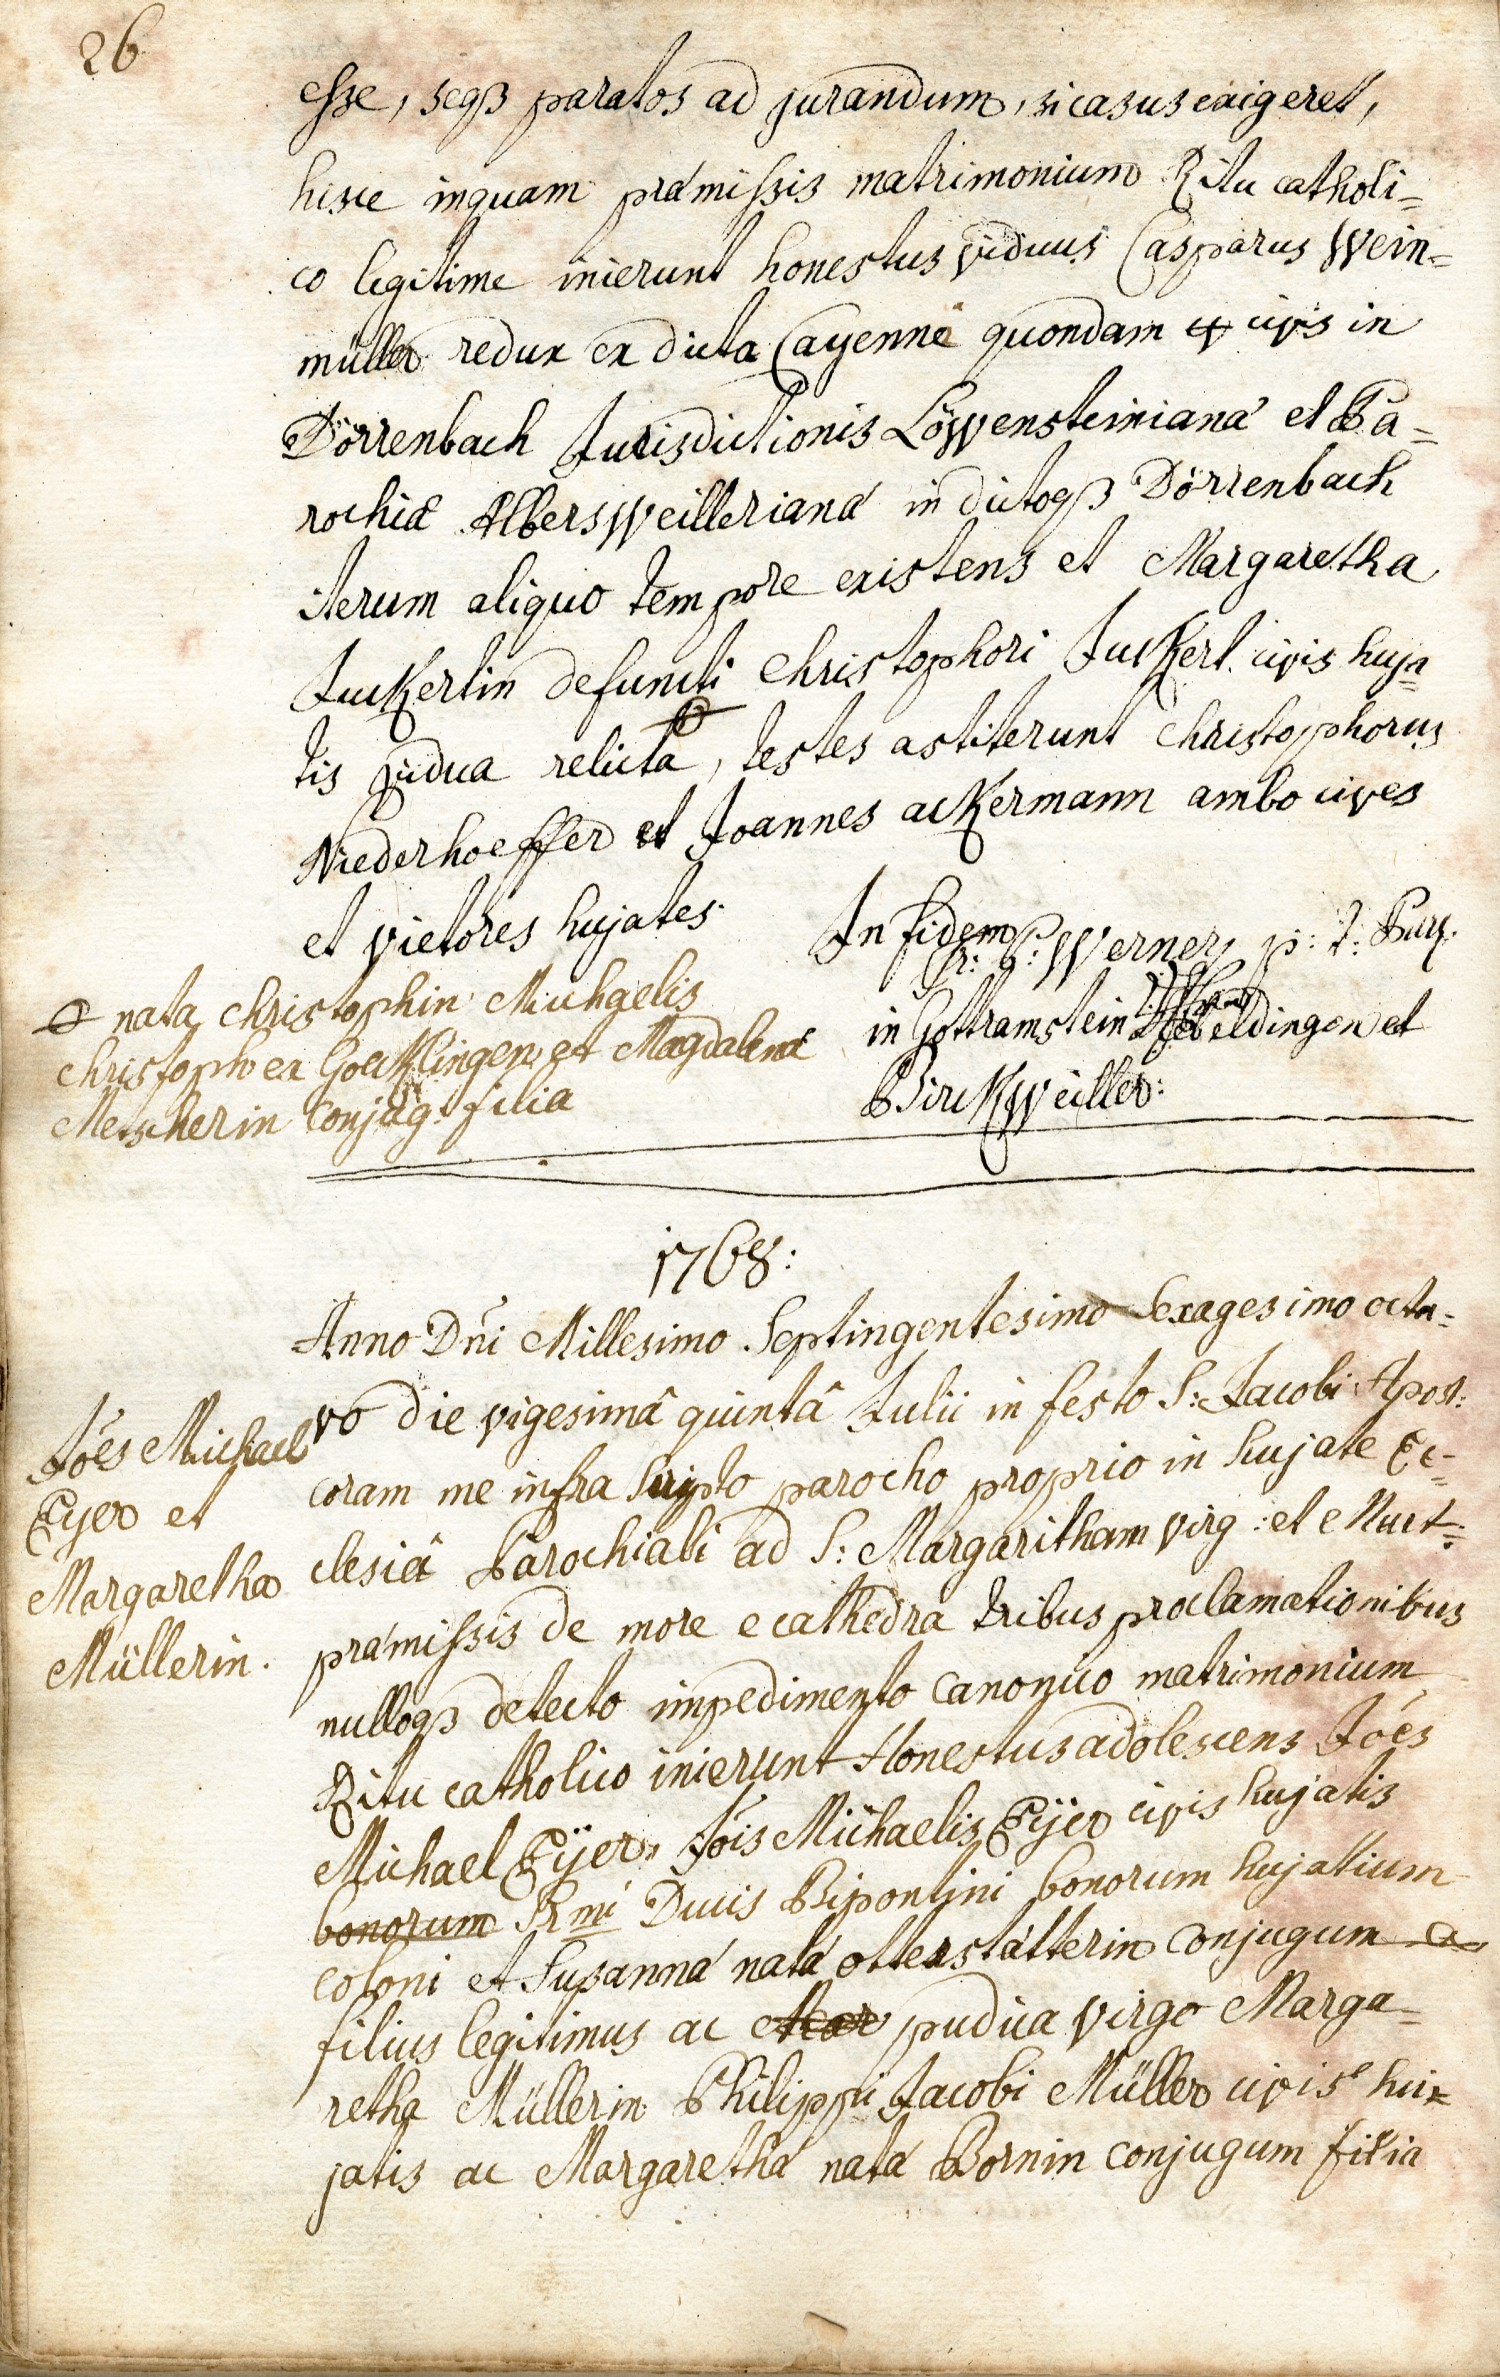 26
esse, seqß paratos ad jurandum, si casus exigeret,
hisce inquam præmissis matrimonium Ritu catholi=
co legitime inierunt honestus viduus Casparus Wein=
müller redux ex dicta Cayenne quondam civis in
Dörrenbach Jurisdictionis Löwensteinianæ et Pa=
rochiæ Albersweillerianæ in dictoqß Dörrenbach
iterum aliquo tempore existens et Margaretha
Juckertin defuncti Christophori Juckert civis huja=
tis vidua relicta, testes astiterunt Christophorus
Niederhoeffer et Joannes ackermann ambo cives
et vietores hujates.
In fidem
Werner p: t: Par.
in Gottramstein Siebeldingen et
Birckweiller:
nata christophin Michaelis
christoph ex Goecklingen et Magdalenæ
Metscherin conjug: filia
1768:
Anno Dn̄i Millesimo Septingentesimo Sexagesimo octa=
vo die vigesimâ quintâ Julii in festo S: Jacobi Apost:
coram me infra scripto parocho proprio in hujate Ec=
clesiâ Parochiali ad S: Margaritham virg: et Mart:
præmissis de more e cathedra tribus proclamationibus
nulloqß detecto impedimento canonico matrimonium
Ritu catholico inierunt Honestus adolescens Jōes
Michael Eÿer, Jōis Michaelis Eÿer civis hujatis
bonorum Srmi Ducis Bipontini bonorum hujatium
coloni et Susannæ natæ otterstätterin conjugum
filius legitimus ac Mar pudica virgo Marga=
retha Müllerin Philippi Jacobi Müller civis hu=
jatis ac Margarethæ natæ Bornin conjugum filia
Jōes Michael
Eyer et
Margaretha
Müllerin.